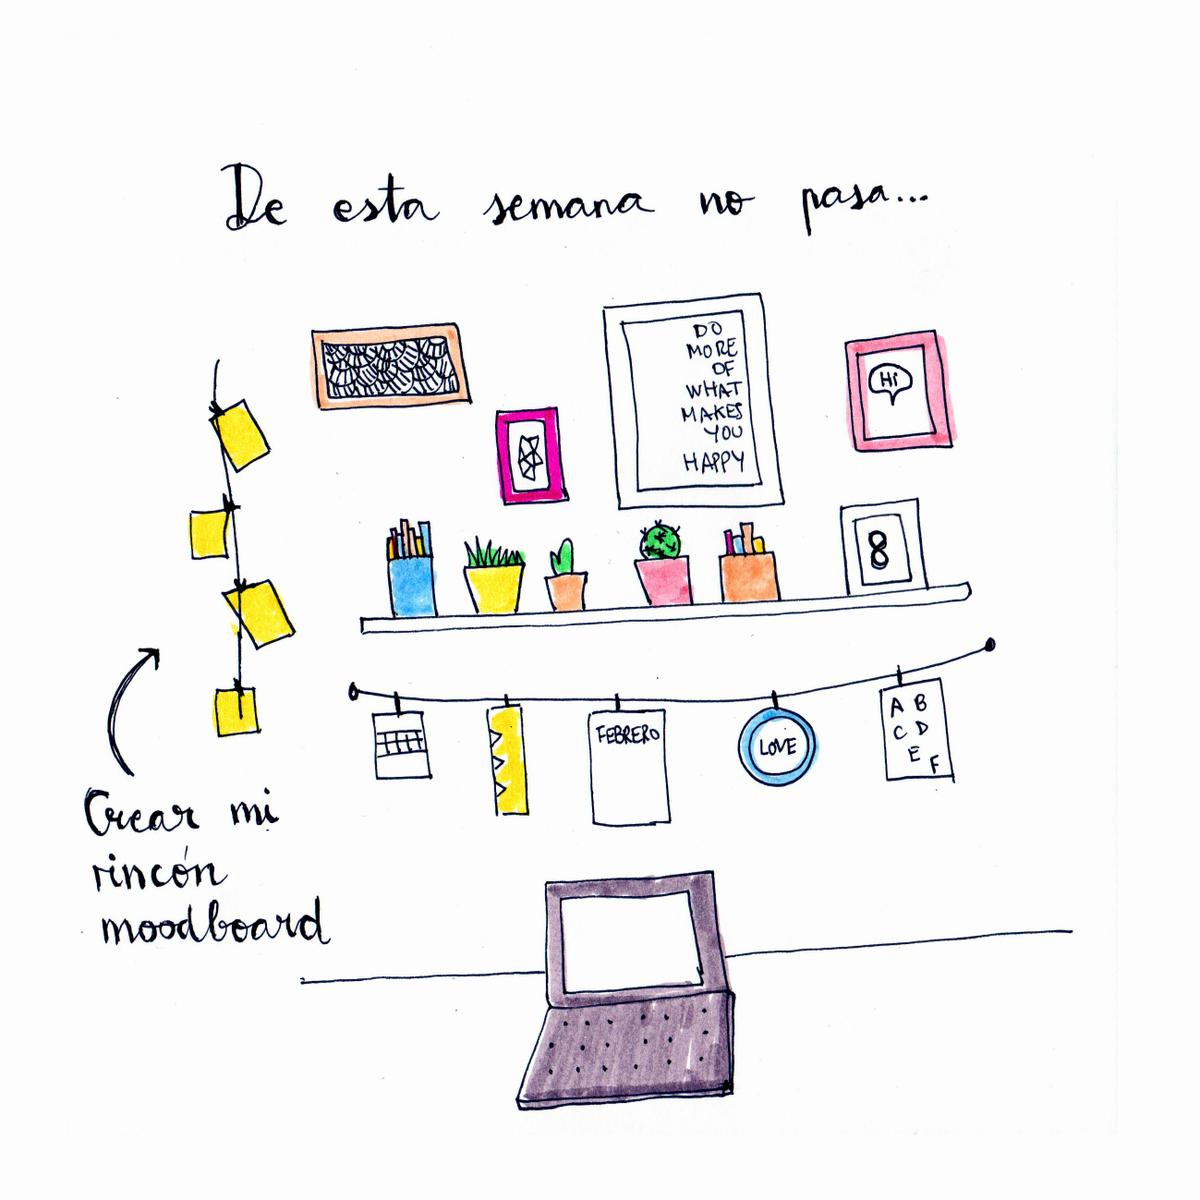 De esta semana no pasa...
DO
MORE
OF
WHAT
MAKES
YOU
HAPPY
Hi
8
FEBRERO
LOVE
A B
C D
E
F
Crear mi
rincón
moodboard